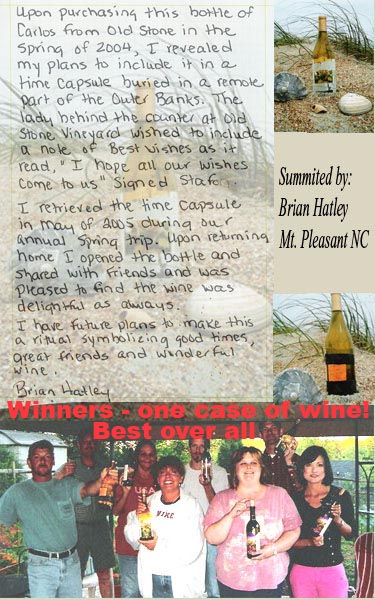 Upon purchasing this bottle of
Carlos from Old Stone in the
Spring of 2004, I revealed
my plans to include it in a
time capsule buried in a remote
part of the Outer Banks. The
lady behind the counter at Old
Stone Vineyard wished to include
a note of Best wishes as it
read, "I hope all our wishes
come to us" Signed Staf
I retrieved the time capsule
in May of 2005 during our
annual Spring trip. Upon returning
home I opened the bottle and
shared with friends and was
pleased to find the wine was
delightful as always.
I have future plans to make this
a ritual symbolizing good times,
great friends and wonderful
wine.
Brian Hatley
Summited by:
Brian Hatley
Mt. Pleasant NC
Winners - one case of wine!
Best over all